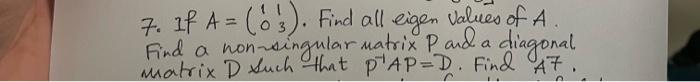 7. If A = (1 1 0 3). Find all eigen values of A.
Find a non-singular matrix P and a diagonal
matrix D such that P⁻¹AP=D. Find A⁷.